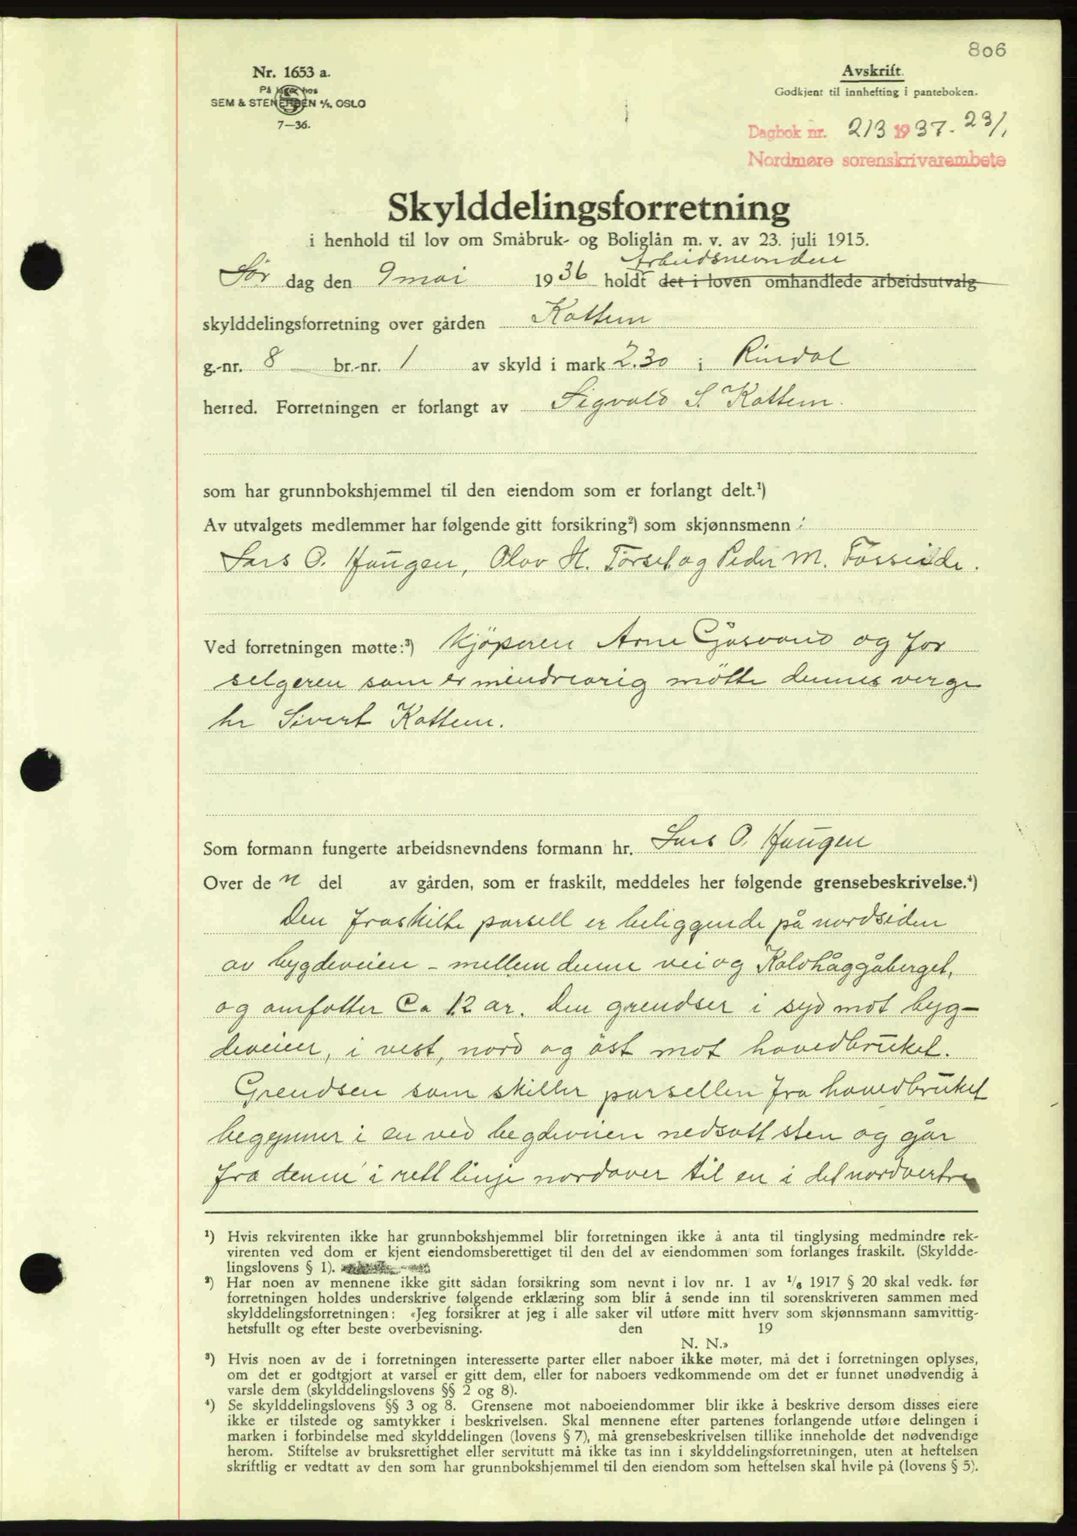 806
Nr. 1653 a.
På lager hos
SEM & STENERSEN A/S, OSLO
7—36.
Avskrift.
Godkjent til innhefting i panteboken.
Dagbok nr. 213 1937 - 23/1
Nordmøre sorenskrivarembete
Skylddelingsforretning
i henhold til lov om Småbruk- og Boliglån m. v. av 23. juli 1915.
Arbeidsnevnden
Lør dag den 9 mai 1936 holdt det i loven omhandlede arbeidsutvalg
skylddelingsforretning over gården Kattem
g.-nr. 8 br.-nr. 1 av skyld i mark 2.30 i Rindal
herred. Forretningen er forlangt av Sigvald S. Kattem.
som har grunnbokshjemmel til den eiendom som er forlangt delt.¹)
Av utvalgets medlemmer har følgende gitt forsikring²) som skjønnsmenn :
Lars O. Haugen, Olav H. Torset og Peder M. Fosseide.
Ved forretningen møtte:³) Kjöperen Arne Gåsvand og for
selgeren som er mindreårig mötte dennes verge
hr Sivert Kattem.
Som formann fungerte arbeidsnevndens formann hr. Lars O. Haugen
Over de n del av gården, som er fraskilt, meddeles her følgende grensebeskrivelse.⁴)
Den fraskilte parsell er beliggende på nordsiden
av bygdeveien - mellem denne vei og Kalvhåggåberget,
og omfatter Ca 12 ar. Den grendser i syd mot byg-
deveien, i vest, nord og öst mot hovedbruket.
Grendsen som skiller parsellen fra hovedbruket
begynner i en ved begdeveien nedsatt sten og går
fra denne i rett linje nordover til en i det nordvestre
¹) Hvis rekvirenten ikke har grunnbokshjemmel blir forretningen ikke å anta til tinglysing medmindre rek-
virenten ved dom er kjent eiendomsberettiget til den del av eiendommen som forlanges fraskilt. (Skyldde-
lingslovens § 1).
²) Har noen av mennene ikke gitt sådan forsikring som nevnt i lov nr. 1 av 1/6 1917 § 20 skal vedk. før
forretningen holdes underskrive følgende erklæring som blir å sende inn til sorenskriveren sammen med
skylddelingsforretningen: «Jeg forsikrer at jeg i alle saker vil utføre mitt hverv som skjønnsmann samvittig-
hetsfullt og efter beste overbevisning. den 19
N. N.»
³) Hvis noen av de i forretningen interesserte parter eller naboer ikke møter, må det i forretningen oplyses,
om det er godtgjort at varsel er gitt dem, eller for naboers vedkommende om det er funnet unødvendig å
varsle dem (skylddelingslovens §§ 2 og 8).
⁴) Se skylddelingslovens §§ 3 og 8. Grensene mot naboeiendommer blir ikke å beskrive dersom disses eiere
ikke er tilstede og samtykker i beskrivelsen. Skal mennene efter partenes forlangende utføre delingen i
marken i forbindelse med skylddelingen (lovens § 7), må grensebeskrivelsen tillike inneholde det nødvendige
herom. Stiftelse av bruksrettighet eller servitutt må ikke tas inn i skylddelingsforretningen, uten at heftelsen
skriftlig er vedtatt av den som har grunnbokshjemmel til den eiendom som heftelsen skal hvile på (lovens § 5).